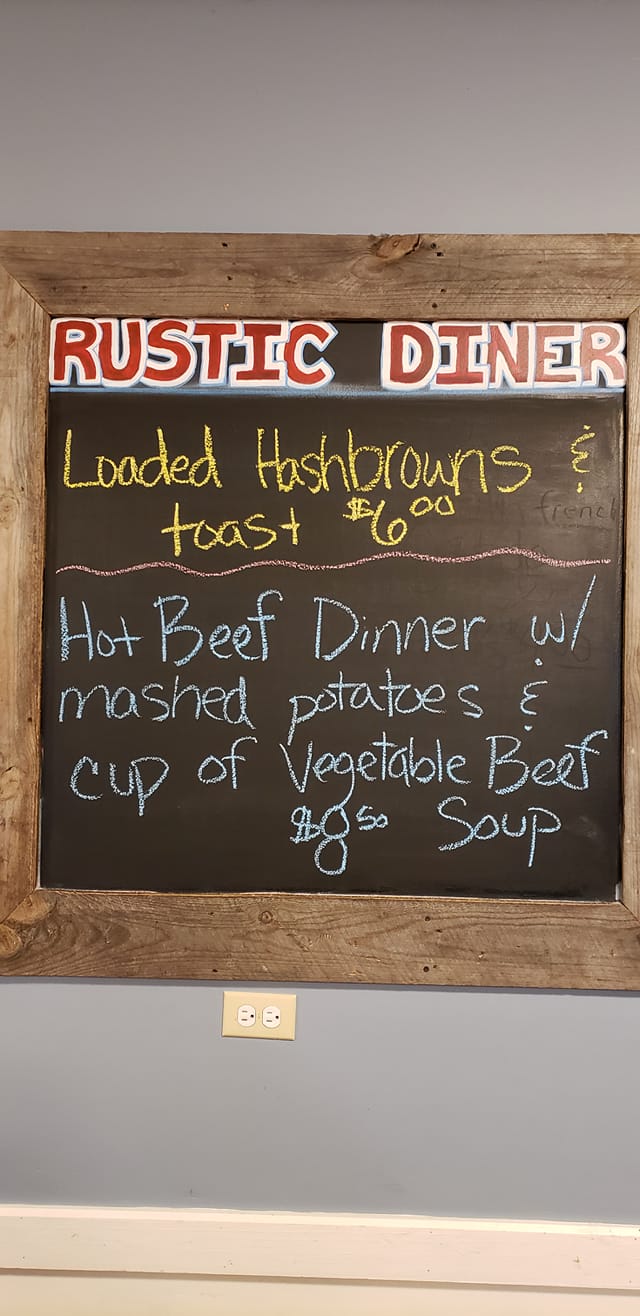 RUSTIC DINER
Loaded Hashbrowns &
toast $6.00
Hot Beef Dinner w/
mashed potatoes &
cup of Vegetable Beef
$8.50 Soup